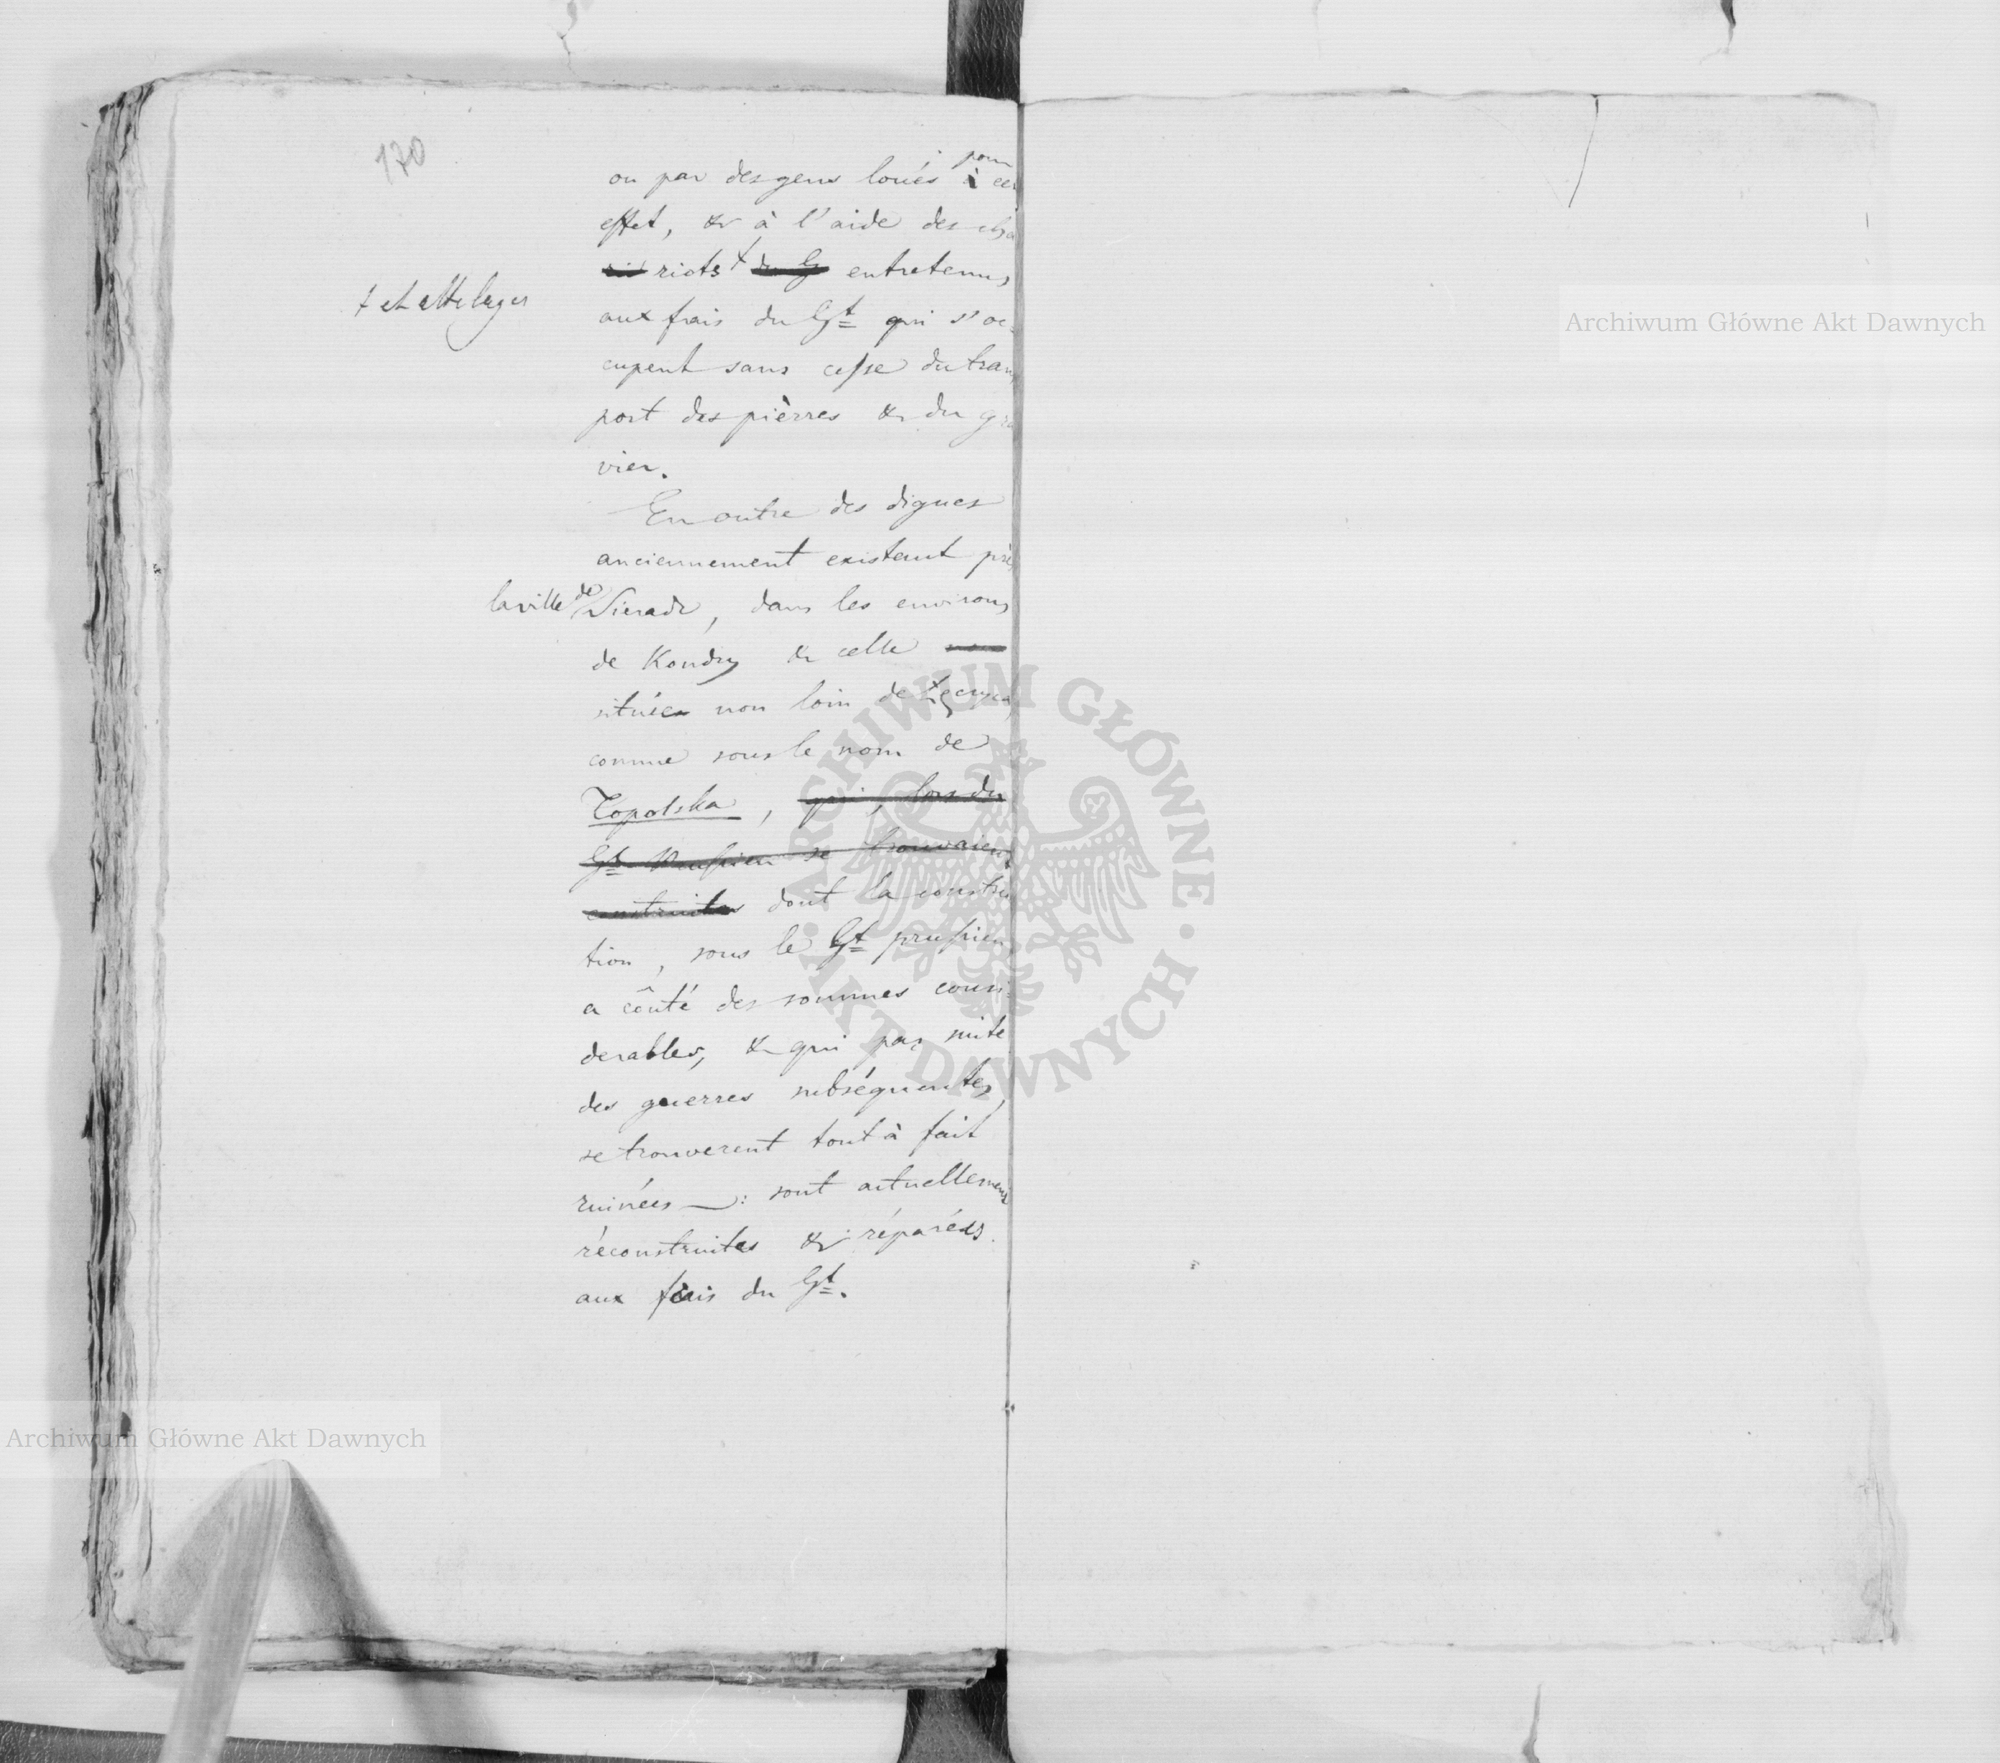 170
ou par des gens loués pour à cet
effet, & à l'aide des cha
riots + du G entretenus
+ et attelages
aux frais du Gt qui s'oc-
cupent sans cesse du trans
port des pièrres & du gra
vier.
En outre des digues
anciennement existant près
la ville de Sieradz, dans les environs
de & celle
située non loin de
comme sous le nom de
Topolska, qui, lors du
Gt Prussien se trouvaient
construites dont la construc
tion, sous le Gt prussien
a côuté des sommes consi-
derables, & qui par suite
des guerres subséquentes,
se trouverent tout à fait
ruinées —: sont actuellement
réconstruites & réparées
aux frais du Gt.
Archiwum Główne Akt Dawnych
Archiwum Główne Akt Dawnych
ARCHIWUM GŁÓWNE · AKT DAWNYCH ·